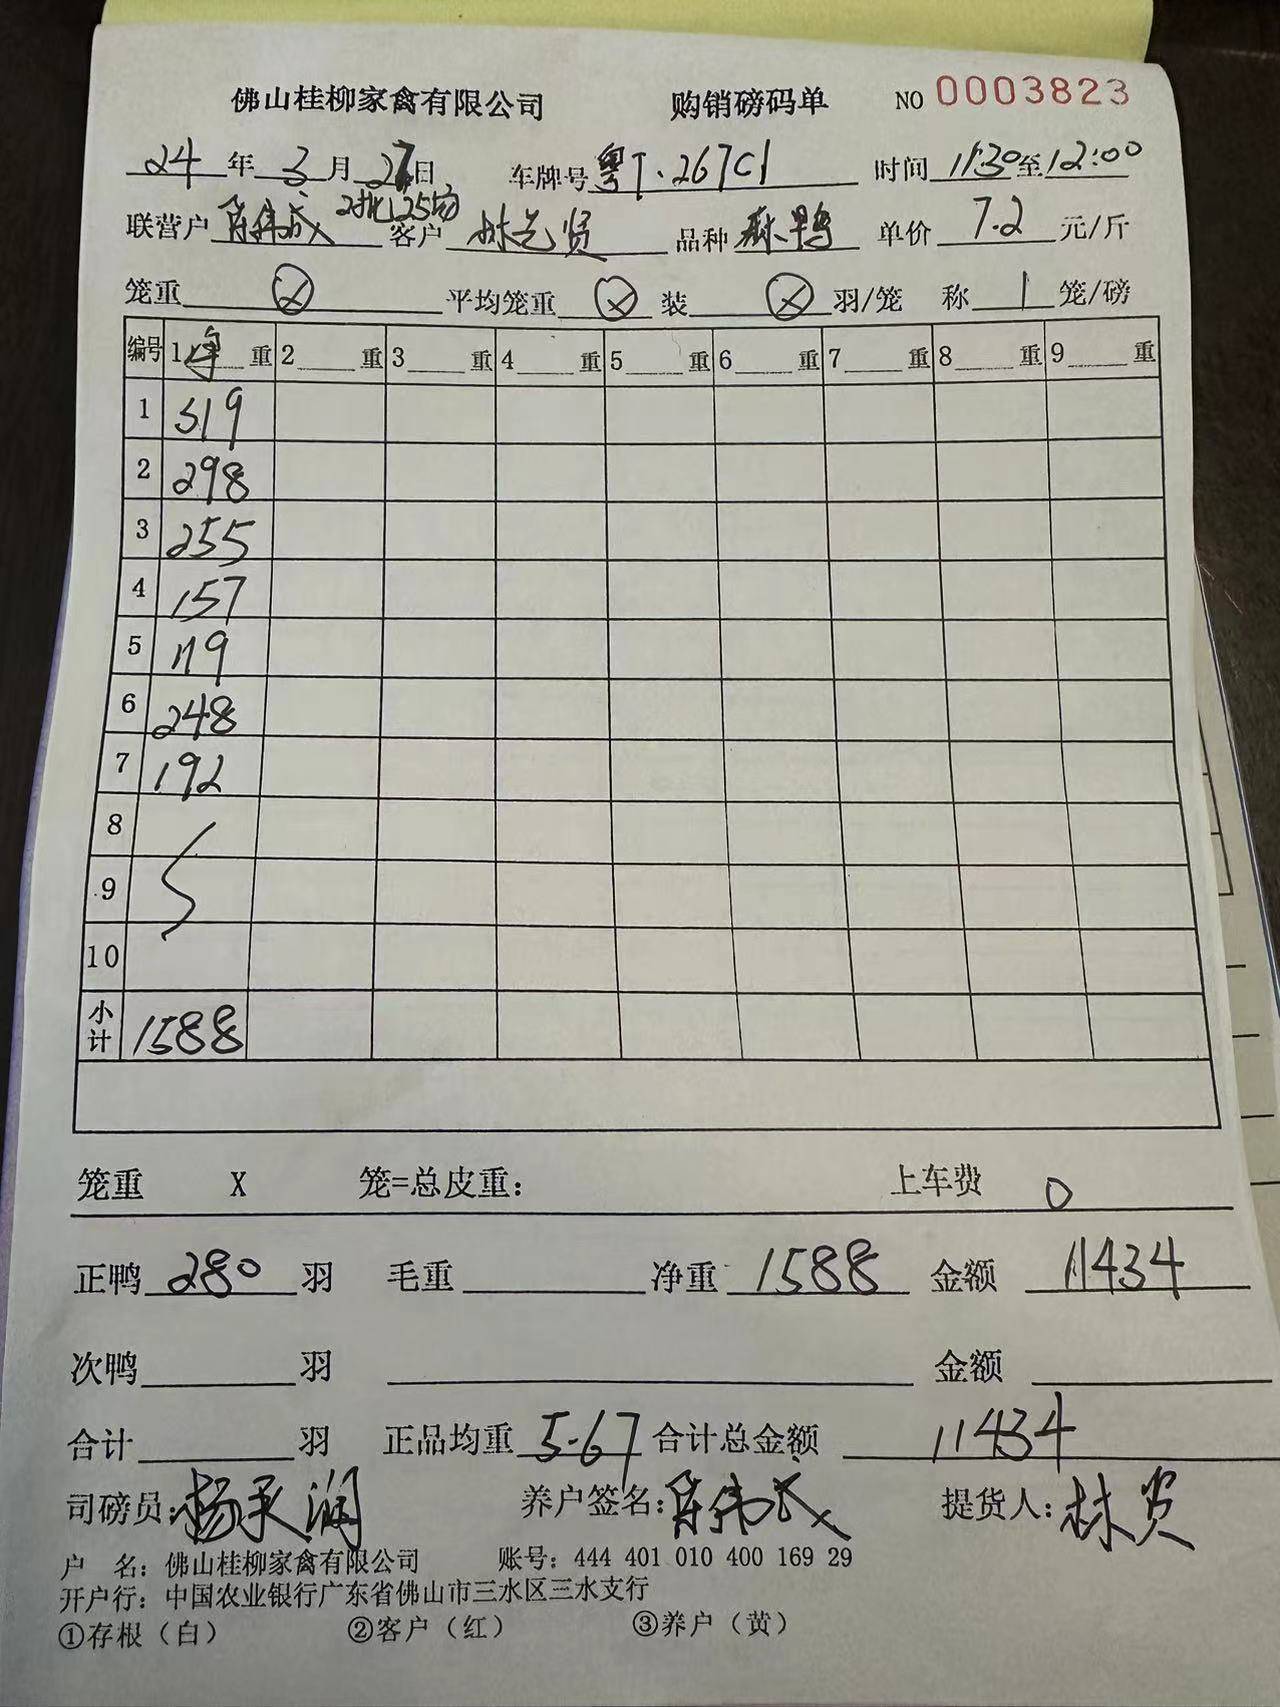 佛山桂柳家禽有限公司 购销磅码单 NO 0003823
24 年 3 月 27 日 车牌号 粤T.267C1 时间 11:30 至 12:00
联营户 陈伟成 2批125场 客户 林艺贤 品种 麻鸭 单价 7.2 元/斤
笼重 ⓧ 平均笼重 ⓧ 装 ⓧ 羽/笼 称 1 笼/磅
编号 1 净 重 2 重 3 重 4 重 5 重 6 重 7 重 8 重 9 重
1 319
2 298
3 255
4 157
5 119
6 248
7 192
8
9
10
小计 1588
笼重 X 笼=总皮重: 上车费 0
正鸭 280 羽 毛重 净重 1588 金额 11434
次鸭 羽 金额
合计 羽 正品均重 5.67 合计总金额 11434
司磅员: 杨天润 养户签名: 陈伟成 提货人: 林贤
户 名: 佛山桂柳家禽有限公司 账号: 444 401 010 400 169 29
开户行: 中国农业银行广东省佛山市三水区三水支行
①存根（白） ②客户（红） ③养户（黄）